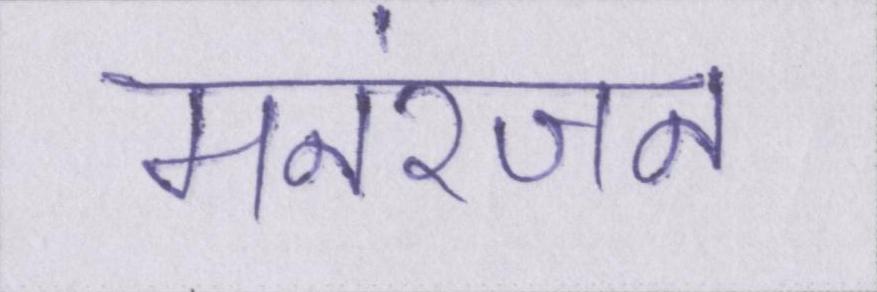 मनंरजन